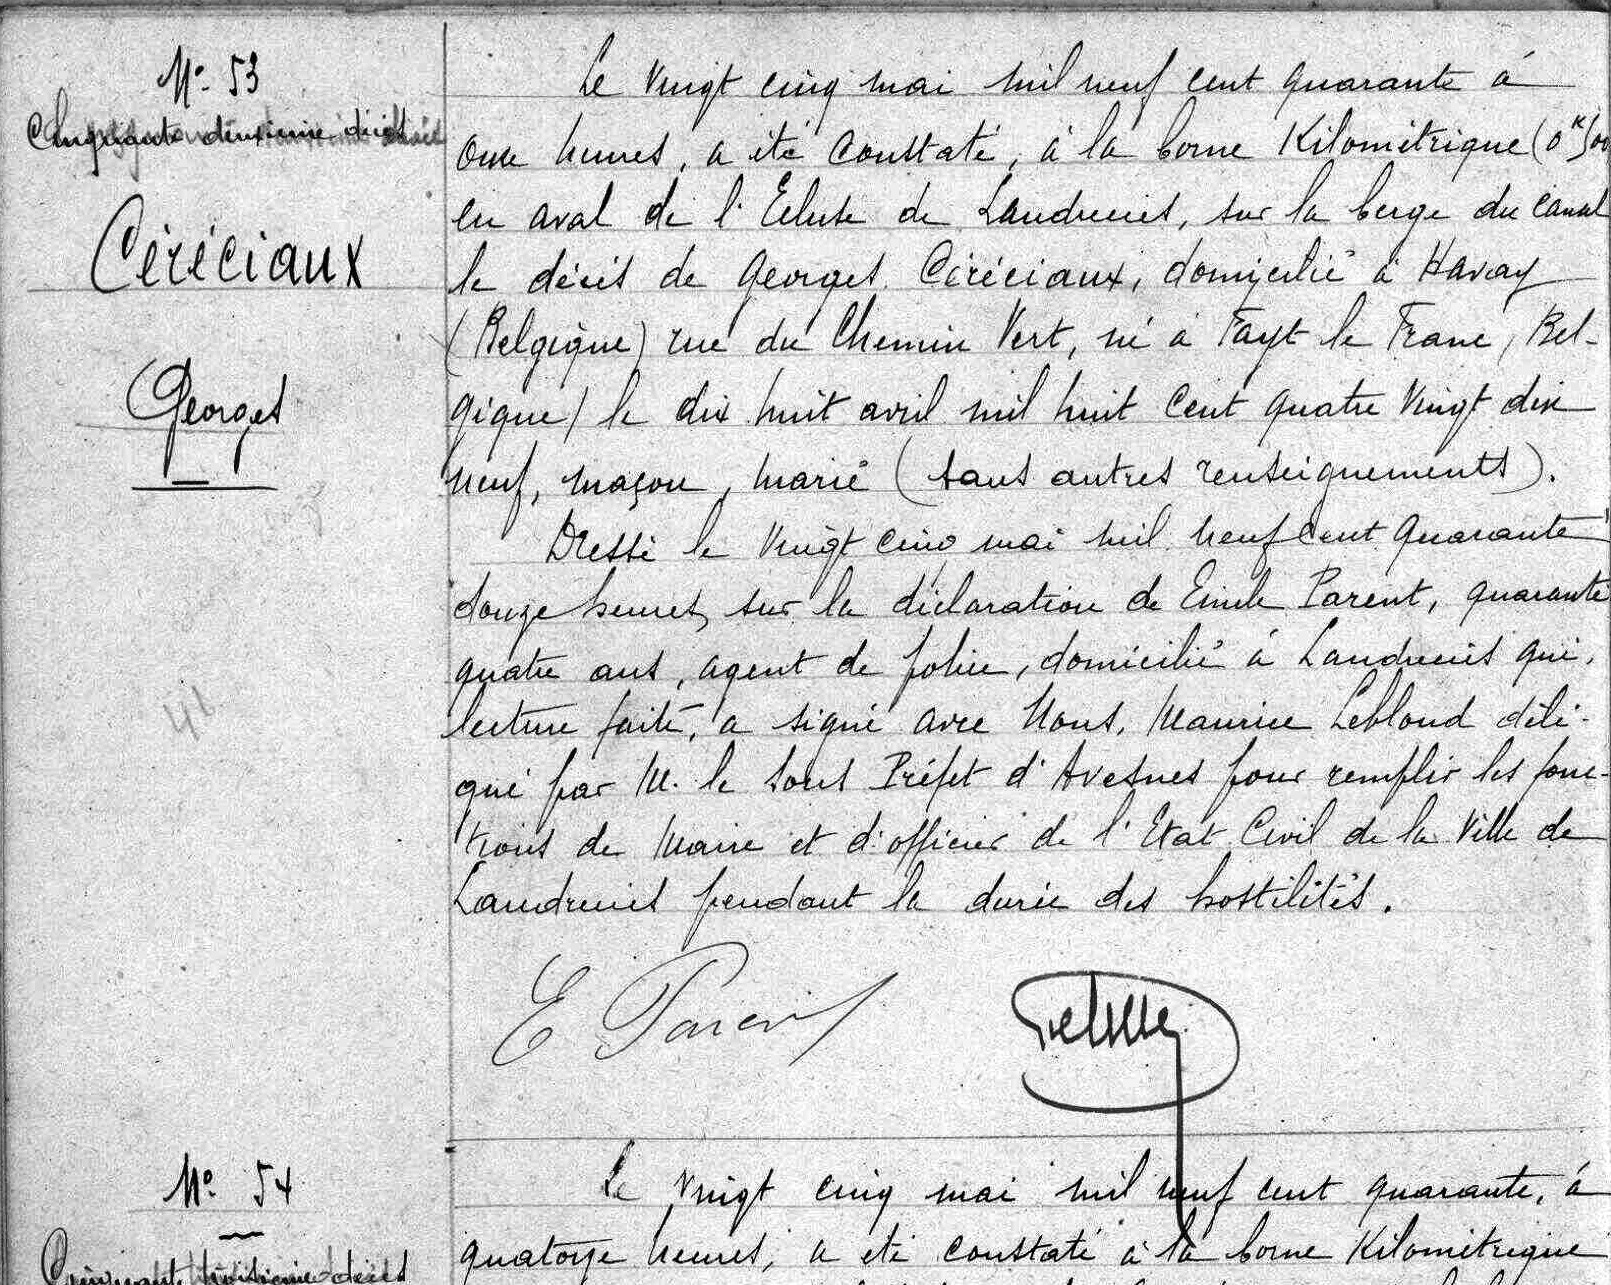 N° 53
Cinquante deuxième décès
Céréciaux
Georges
41
Le vingt cinq mai mil neuf cent quarante à
onze heures, a été constaté, à la borne Kilométrique (0ᵏ500
en aval de l'Ecluse de Landrecies, sur la berge du canal
le décès de Georges Céréciaux, domicilié à Havay
(Belgique) rue du Chemin Vert, né à Fayt le Franc (Bel-
gique) le dix huit avril mil huit cent quatre vingt dix
neuf, maçon, marié (sans autres renseignements).
Dressé le vingt cinq mai mil neuf cent quarante
douze heures, sur la déclaration de Emile Parent, quarante
quatre ans, agent de police, domicilié à Landrecies qui,
lecture faite, a signé avec Nous, Maurice Leblond délé-
gué par M. le Sous Préfet d'Avesnes pour remplir les fonc-
tions de Maire et d'officier de l'Etat Civil de la Ville de
Landrecies pendant la durée des hostilités.
E Parent
N° 54
Cinquante troisième décès
Le vingt cinq mai mil neuf cent quarante, à
quatorze heures, a été constaté à la borne Kilométrique